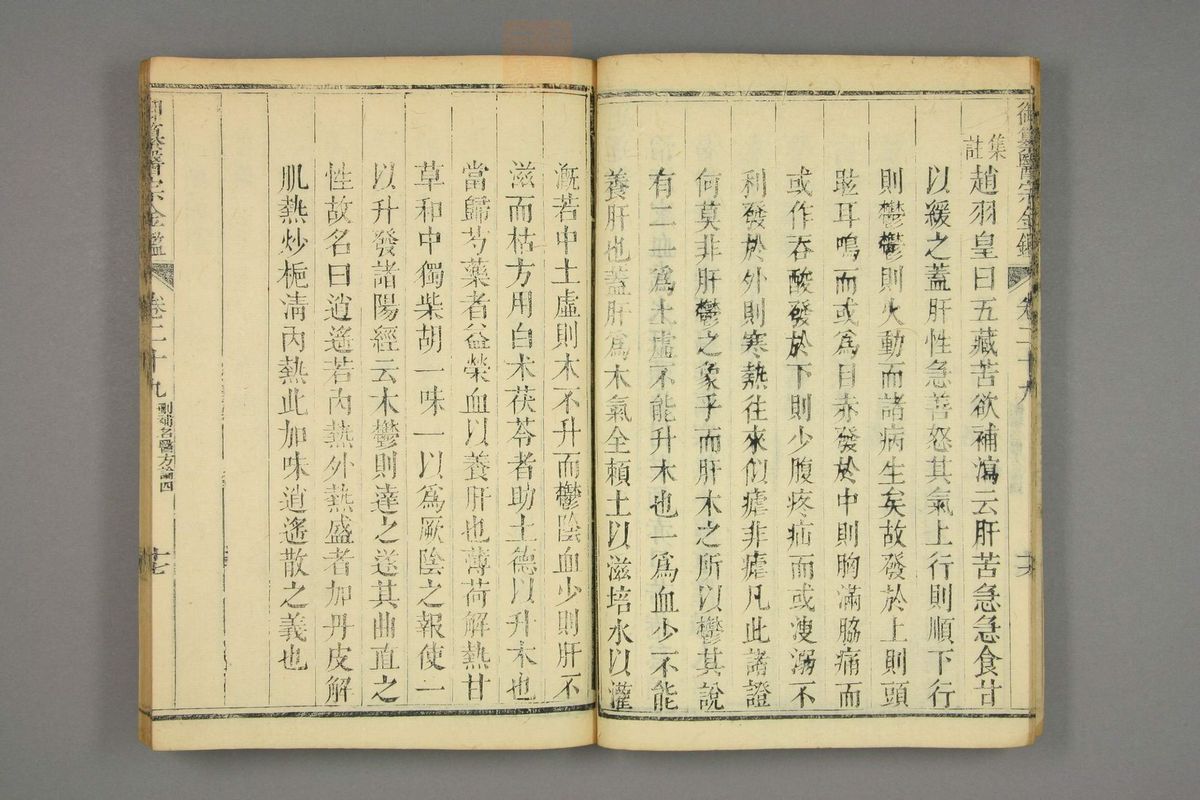 御纂醫宗金鑑 卷二十九
集註
趙羽皇曰五藏苦欲補瀉云肝苦急急食甘
以緩之蓋肝性急善怒其氣上行則順下行
則鬱鬱則火動而諸病生矣故發於上則頭
眩耳鳴而或爲目赤發於中則胸滿脇痛而
或作吞酸發於下則少腹疼疝而或溲溺不
利發於外則寒熱往來似瘧非瘧凡此諸證
何莫非肝鬱之象乎而肝木之所以鬱其說
有二一爲土虛不能升木也一爲血少不能
養肝也蓋肝爲木氣全賴土以滋培水以灌
漑若中土虛則木不升而鬱陰血少則肝不
滋而枯方用白术茯苓者助土德以升木也
當歸芍藥者益榮血以養肝也薄荷解熱甘
草和中獨柴胡一味一以爲厥陰之報使一
以升發諸陽經云木鬱則達之遂其曲直之
性故名曰逍遙若內熱外熱盛者加丹皮解
肌熱炒梔淸內熱此加味逍遙散之義也
御纂醫宗金鑑 卷二十九 刪補名醫方論四